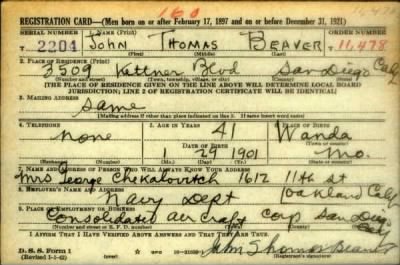 160
REGISTRATION CARD—(Men born on or after February 17, 1897 and on or before December 31, 1921)
SERIAL NUMBER 1. NAME (Print) ORDER NUMBER
2204 John Thomas Beaver 11,478
(First) (Middle) (Last)
2. PLACE OF RESIDENCE (Print)
3509 Kettner Blvd San Diego Calif
(Number and street) (Town, township, village, or city) (County) (State)
[THE PLACE OF RESIDENCE GIVEN ON THE LINE ABOVE WILL DETERMINE LOCAL BOARD
JURISDICTION; LINE 2 OF REGISTRATION CERTIFICATE WILL BE IDENTICAL]
3. MAILING ADDRESS
Same
(Mailing address if other than place indicated on line 2. If same insert word same)
4. TELEPHONE 5. AGE IN YEARS PLACE OF BIRTH
none 41 Wanda
DATE OF BIRTH (Town or county)
1 29 1901 Mo.
(Exchange) (Number) (Mo.) (Day) (Yr.) (State or country)
7. NAME AND ADDRESS OF PERSON WHO WILL ALWAYS KNOW YOUR ADDRESS
Mrs George Chekalovitch 1612 11th st
8. EMPLOYER'S NAME AND ADDRESS
Navy Dept Oakland Calif
9. PLACE OF EMPLOYMENT OR BUSINESS
Consolidated air craft Corp San Diego
Calif
(Number and street or R. F. D. number) (Town) (County) (State)
I AFFIRM THAT I HAVE VERIFIED ABOVE ANSWERS AND THAT THEY ARE TRUE.
D. S. S. Form 1
(Revised 1-1-42) (over)
John Thomas Beaver
(Registrant's signature)